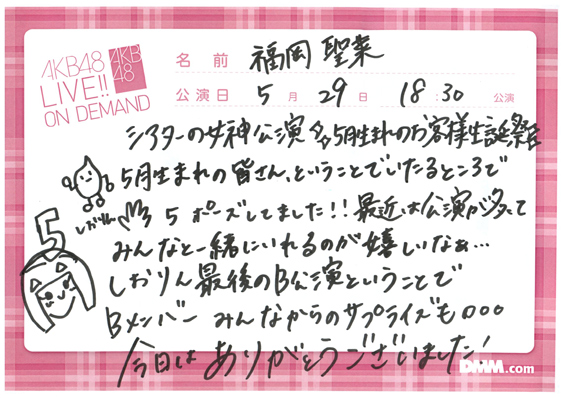 AKB48
LIVE!!
ON DEMAND
AKB
48
名前 福岡 聖菜
公演日 5月 29日 18:30 公演
シアターの女神公演 5月生まれのお客様生誕祭
5月生まれの皆さん、ということでいたるところで
5 ポーズしてました!!最近は公演が多くて
しおりん
5
みんなと一緒にいれるのが嬉しいなぁ…
しおりん最後のB公演ということで
Bメンバー みんなからのサプライズも○○○
今日はありがとうございました!
DMM.com